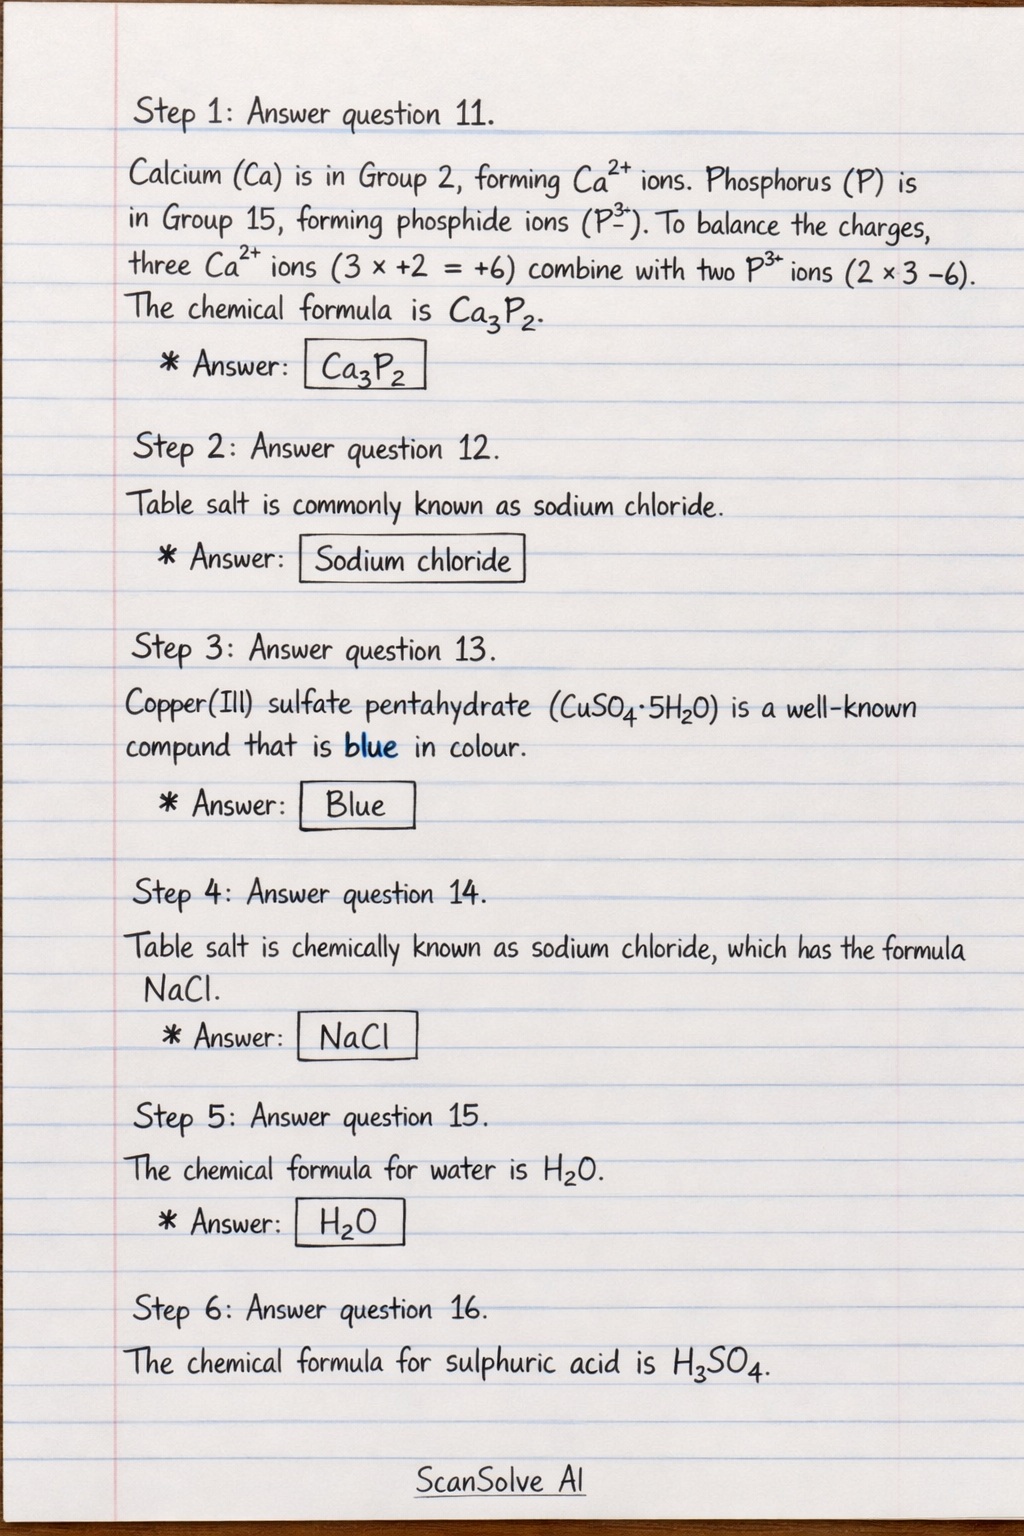 Step 1: Answer question 11.
Calcium (Ca) is in Group 2, forming Ca²⁺ ions. Phosphorus (P) is
in Group 15, forming phosphide ions (P³⁻). To balance the charges,
three Ca²⁺ ions (3 × +2 = +6) combine with two P³⁺ ions (2 × 3 –6).
The chemical formula is Ca₃P₂.
* Answer: Ca₃P₂
Step 2: Answer question 12.
Table salt is commonly known as sodium chloride.
* Answer: Sodium chloride
Step 3: Answer question 13.
Copper(III) sulfate pentahydrate (CuSO₄·5H₂O) is a well-known
compund that is blue in colour.
* Answer: Blue
Step 4: Answer question 14.
Table salt is chemically known as sodium chloride, which has the formula
NaCl.
* Answer: NaCl
Step 5: Answer question 15.
The chemical formula for water is H₂O.
* Answer: H₂O
Step 6: Answer question 16.
The chemical formula for sulphuric acid is H₃SO₄.
ScanSolve AI